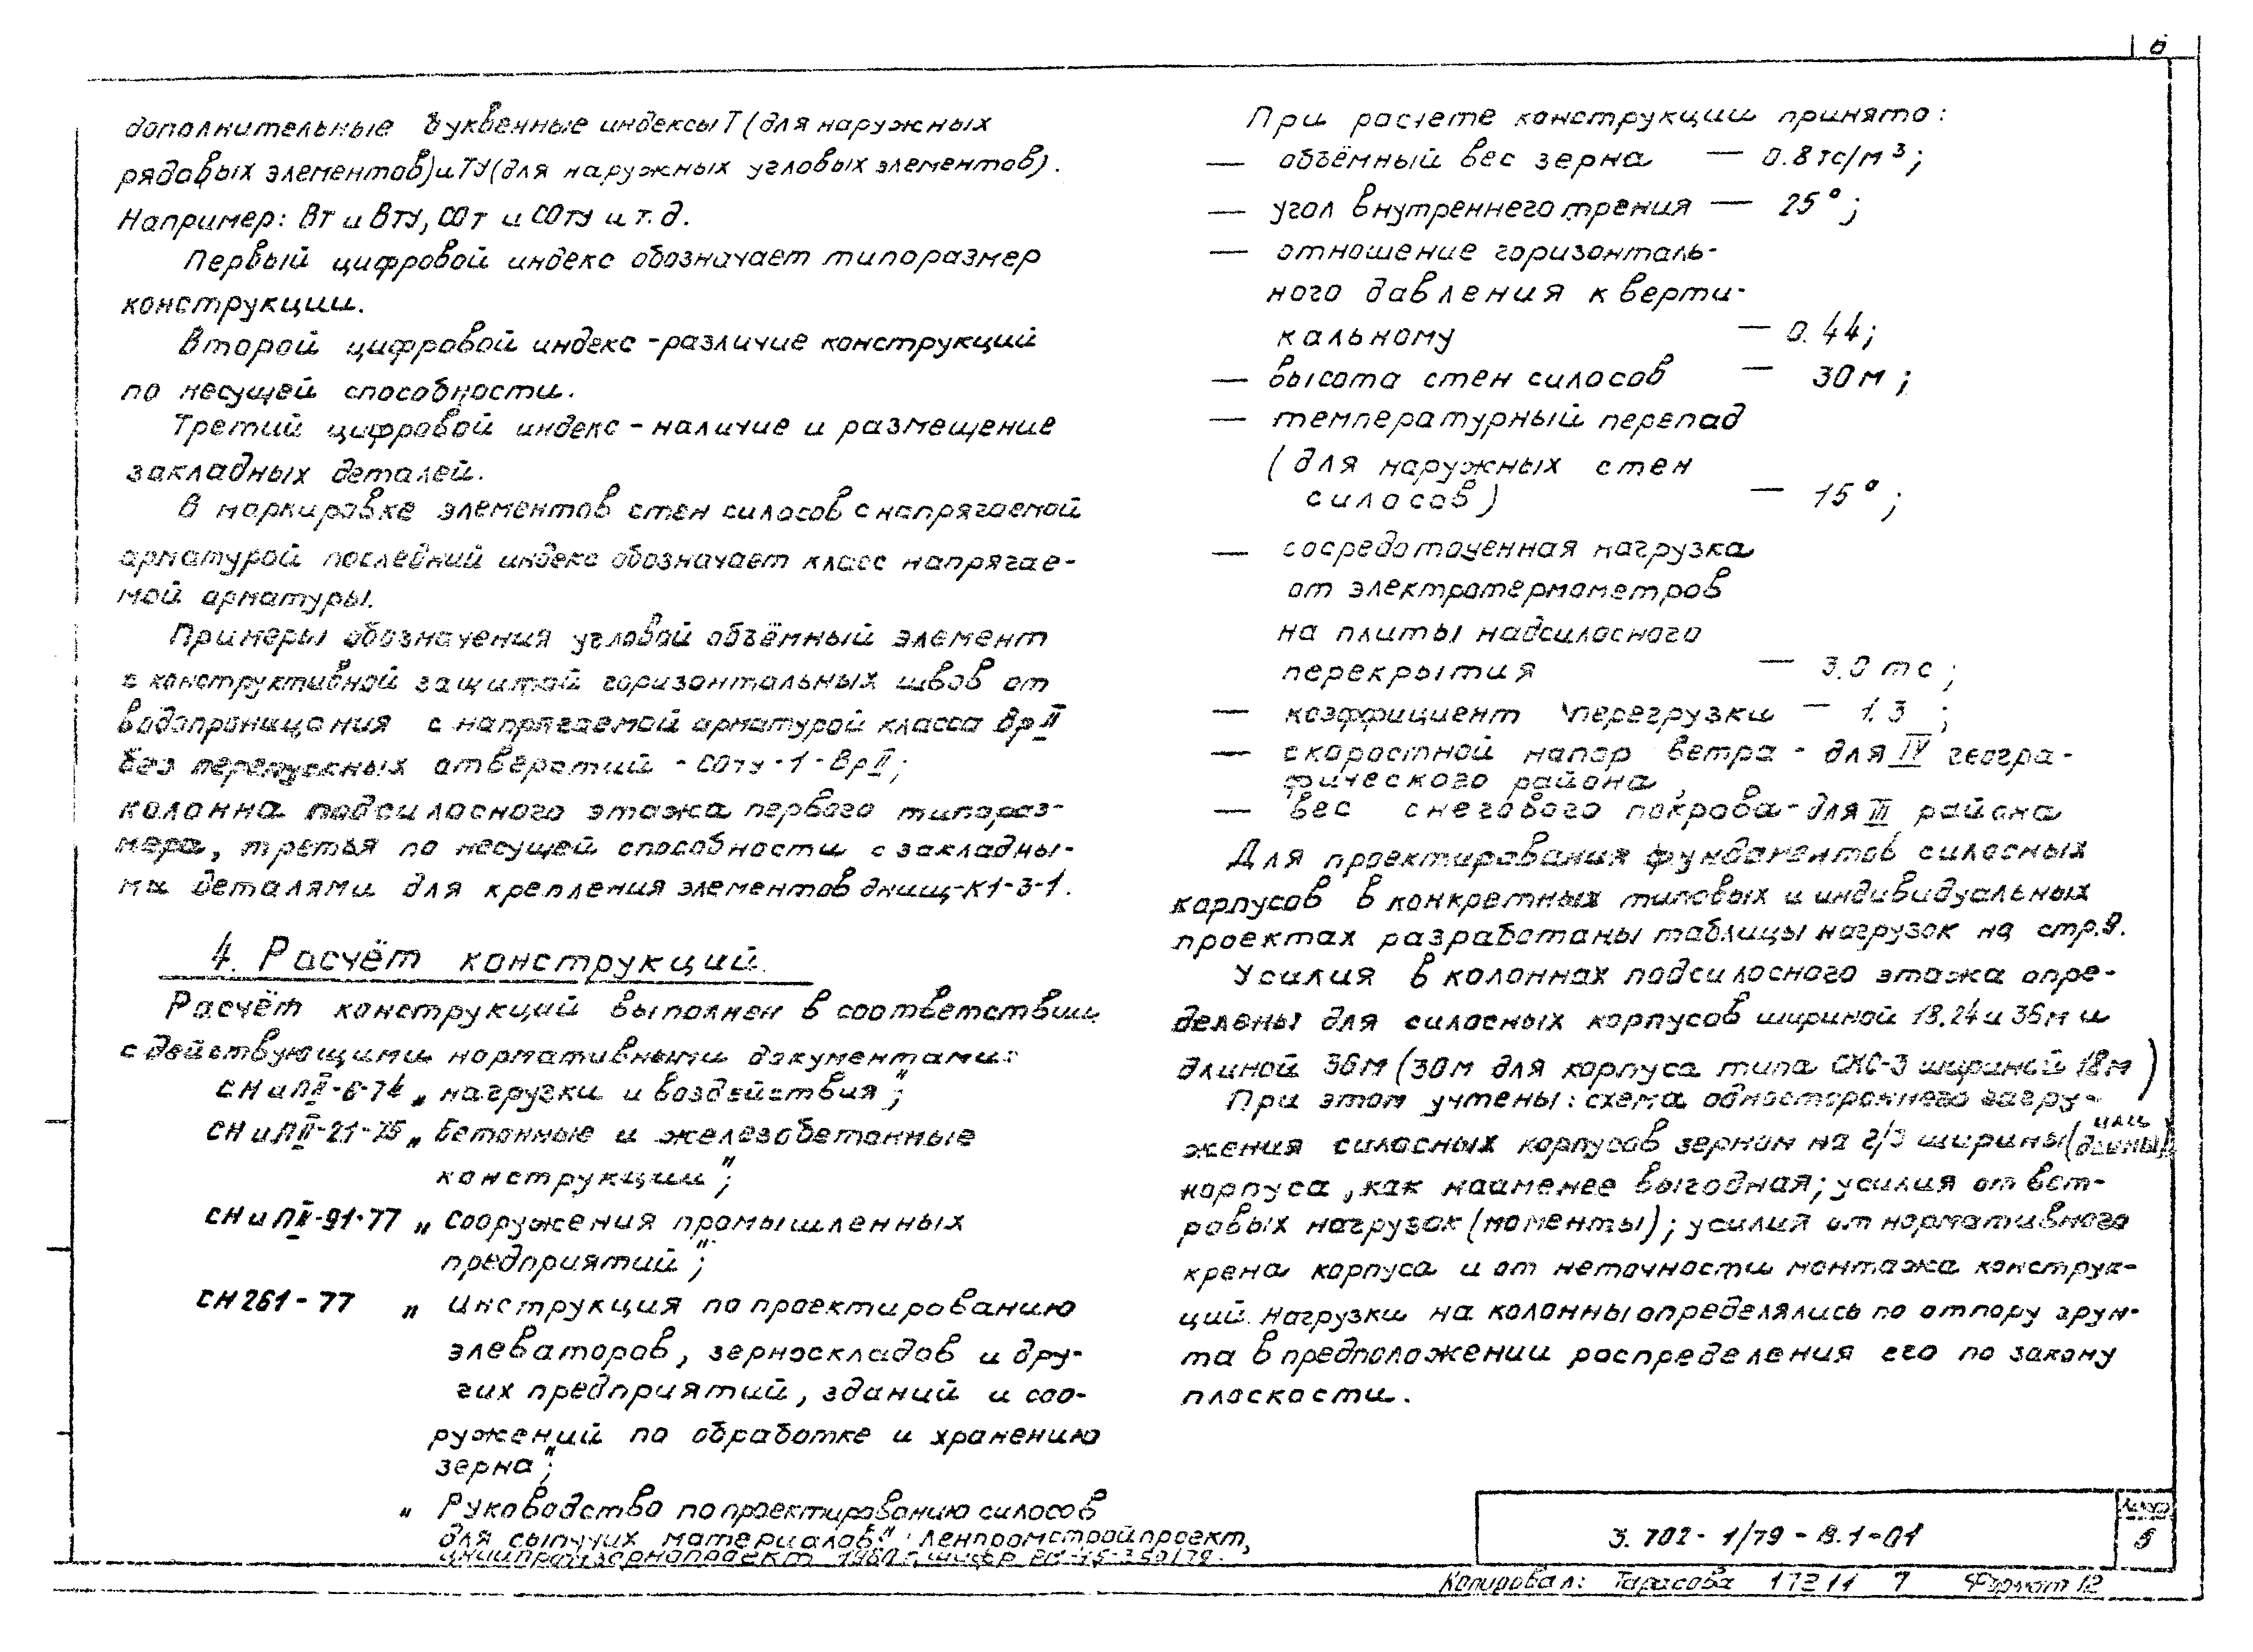 6
дополнительные буквенные индексы Т (для наружных
рядовых элементов) и ТУ (для наружных угловых элементов).
Например: Вт и Вту, СОт и СОту и т.д.
Первый цифровой индекс обозначает типоразмер
конструкции.
Второй цифровой индекс - различие конструкций
по несущей способности.
Третий цифровой индекс - наличие и размещение
закладных деталей.
В маркировке элементов стен силосов с напрягаемой
арматурой последний индекс обозначает класс напрягае-
мой арматуры.
Примеры обозначения угловой объёмный элемент
с конструктивной защитой горизонтальных швов от
водопроницания с напрягаемой арматурой класса Вр II
без перепускных отверстий - СОту-1-Вр II;
колонна подсилосного этажа первого типораз-
мера, третья по несущей способности с закладны-
ми деталями для крепления элементов днищ-К1-3-1.
4. Расчёт конструкций.
Расчёт конструкций выполнен в соответствии
с действующими нормативными документами:
СН и П II-6-74 „нагрузки и воздействия";
СН и П II-21-75 „Бетонные и железобетонные
конструкции";
СН и П II-91-77 „Сооружения промышленных
предприятий";
СН 261-77 „Инструкция по проектированию
элеваторов, зерноскладов и дру-
гих предприятий, зданий и соо-
ружений по обработке и хранению
зерна";
„Руководство по проектированию силосов
для сыпучих материалов". Ленпромстройпроект,
ЦНИИпромзернопроект 1980 г. шифр
При расчете конструкции принято:
— объёмный вес зерна — 0.8 тс/м³;
— угол внутреннего трения — 25°;
— отношение горизонталь-
ного давления к верти-
кальному — 0.44;
— высота стен силосов — 30 м;
— температурный перепад
(для наружных стен
силосов) — 15°;
— сосредоточенная нагрузка
от электротермометров
на плиты надсилосного
перекрытия — 3.0 тс;
— коэффициент перегрузки — 1.3;
— скоростной напор ветра - для IV геогра-
фического района,
— вес снегового покрова - для III района
Для проектирования фундаментов силосных
корпусов в конкретных типовых и индивидуальных
проектах разработаны таблицы нагрузок на стр. 9.
Усилия в колоннах подсилосного этажа опре-
делены для силосных корпусов шириной 18, 24 и 36 м и
длиной 36 м (30 м для корпуса типа СКС-3 шириной 18 м)
При этом учтены: схема одностороннего загру-
жения силосных корпусов зерном на 2/3 ширины (или длины)
корпуса, как наименее выгодная; усилия от вет-
ровых нагрузок (моменты); усилия от нормативного
крена корпуса и от неточности монтажа конструк-
ций. Нагрузки на колонны определялись по отпору грун-
та в предположении распределения его по закону
плоскости.
3.702-1/79-В.1-01
Лист
5
Копировал: Тарасова 17211 7 Формат 12